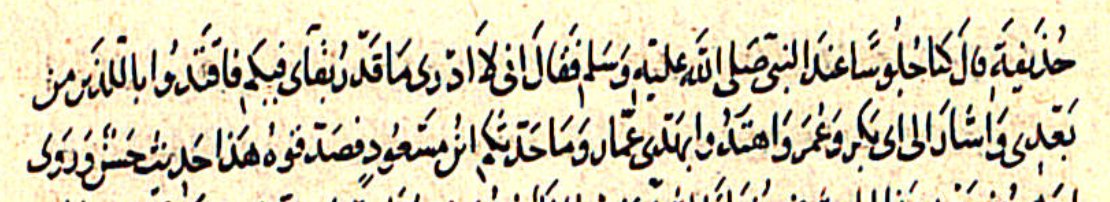 حُذَيفَةَ قالَ كنا جُلُوسًا عندَ النبىِّ صَلى اللّه عليْهِ وَسَلم فَقالَ انى لاَ ادْرى مَا قَدْرُ بَقآى فيكم فاقْتَدُوا باللَّذَينِ من
بَعْدِى وَاشَارَ الى ابى بَكرٍ وَعُمَرَ وَاهتَدُوا بِهَدْىِ عَمّار وَمَا حَدَّثكم ابنُ مَسْعُودٍ فَصَدّقوهُ هَذا حَدِيثٌ حَسَنٌ وَرَوَى